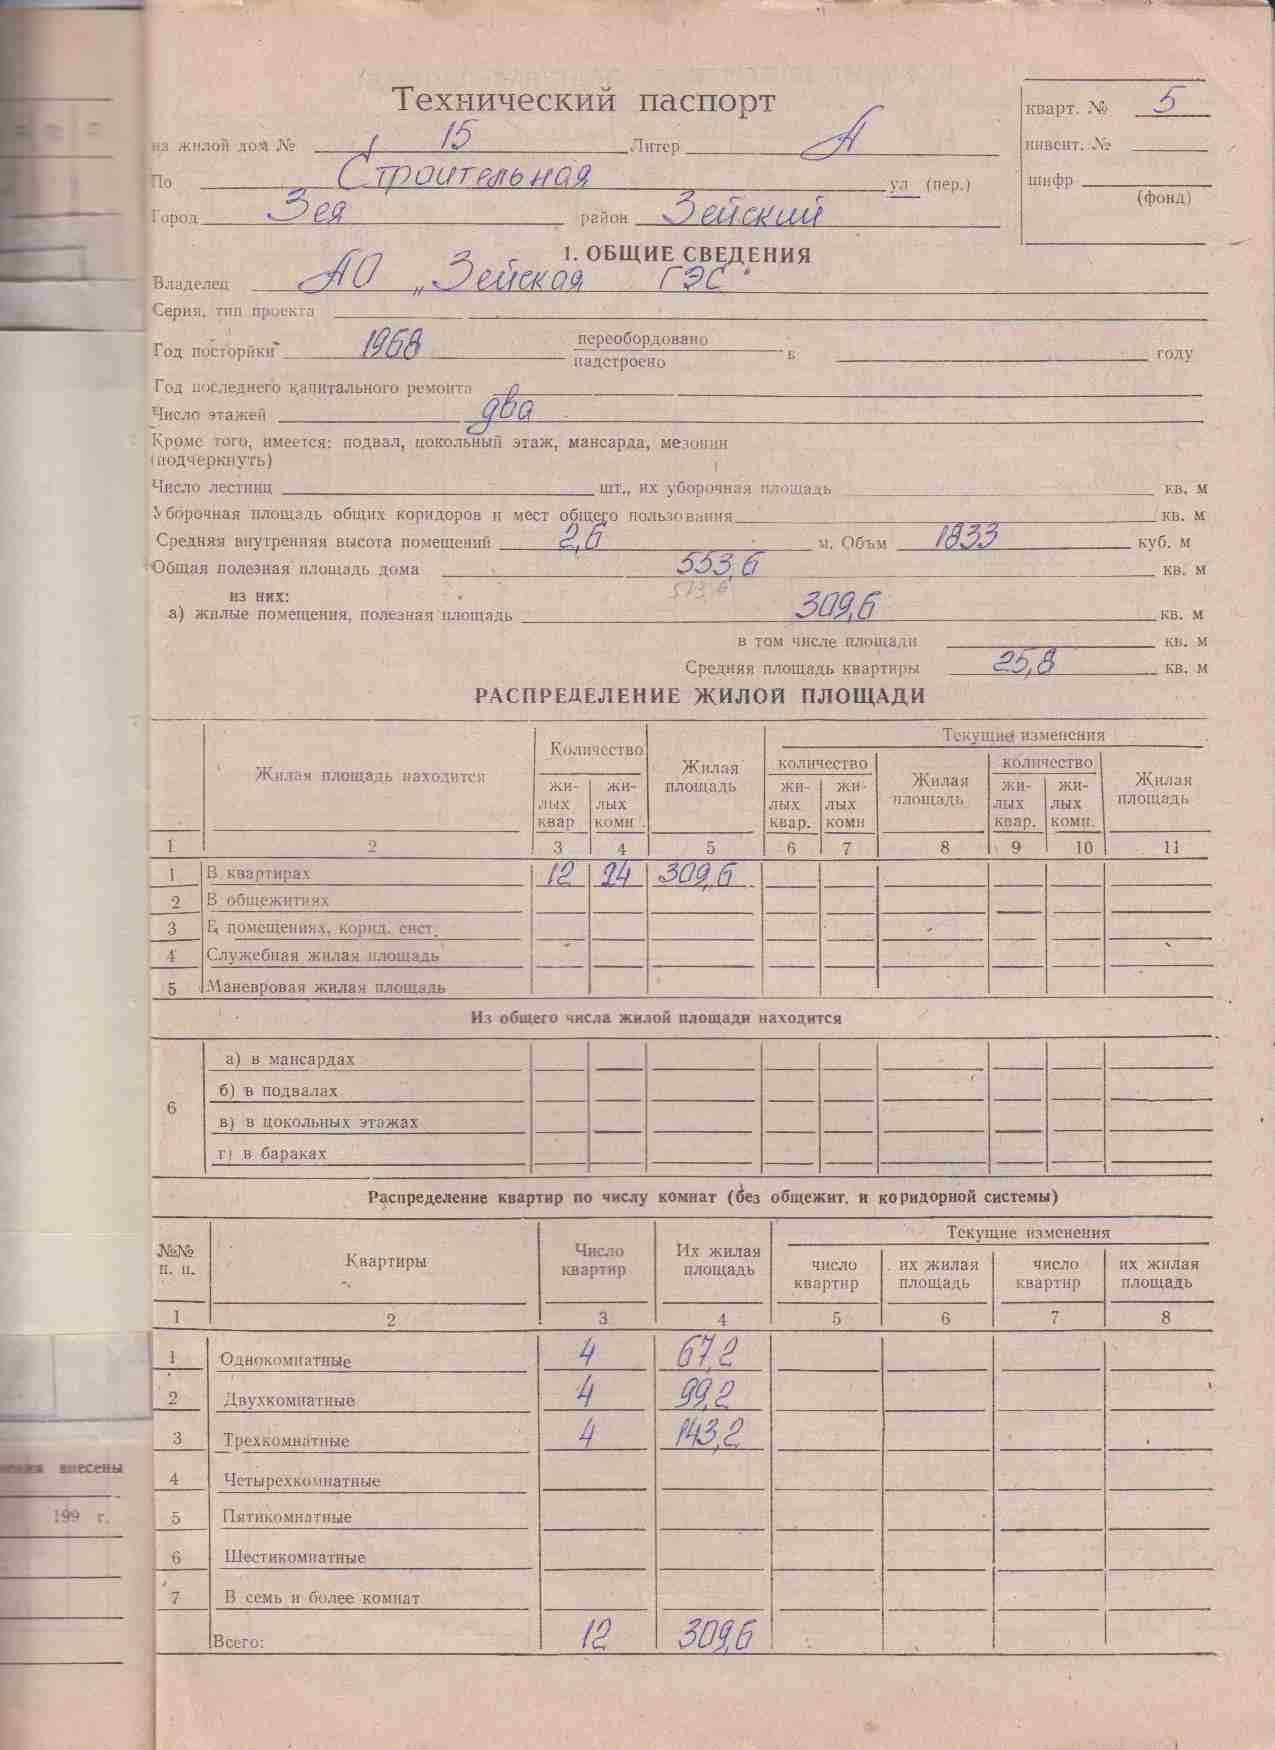 Технический паспорт
на жилой дом № 15 Литер А
кварт. № 5
инвент. №
По Строительная ул (пер.)
шифр
(фонд)
Город Зея район Зейский
1. ОБЩИЕ СВЕДЕНИЯ
Владелец АО „Зейская ГЭС"
Серия, тип проекта
Год посторйки 1968 переобордовано
надстроено в году
Год последнего капитального ремонта
Число этажей два
Кроме того, имеется: подвал, цокольный этаж, мансарда, мезонин
(подчеркнуть)
Число лестниц шт., их уборочная площадь кв. м
Уборочная площадь общих коридоров и мест общего пользования кв. м
Средняя внутренняя высота помещений 2,6 м. Объм 1833 куб. м
Общая полезная площадь дома 553,6 кв. м
из них: 513,6
а) жилые помещения, полезная площадь 309,6 кв. м
в том числе площади кв. м
Средняя площадь квартиры 25,8 кв. м
РАСПРЕДЕЛЕНИЕ ЖИЛОЙ ПЛОЩАДИ
Жилая площадь находится Количество Жилая площадь Текущие изменения
количество Жилая площадь количество Жилая площадь
жи-лых квар жи-лых комн. жи-лых квар. жи-лых комн жи-лых квар. жи-лых комн.
1 2 3 4 5 6 7 8 9 10 11
1 В квартирах 12 24 309,6
2 В общежитиях
3 В помещениях, корид. сист.
4 Служебная жилая площадь
5 Маневровая жилая площадь
Из общего числа жилой площади находится
6 а) в мансардах
б) в подвалах
в) в цокольных этажах
г) в бараках
Распределение квартир по числу комнат (без общежит. и коридорной системы)
№№ п. п. Квартиры Число квартир Их жилая площадь Текущие изменения
число квартир их жилая площадь число квартир их жилая площадь
1 2 3 4 5 6 7 8
1 Однокомнатные 4 67,2
2 Двухкомнатные 4 99,2
3 Трехкомнатные 4 143,2
4 Четырехкомнатные
5 Пятикомнатные
6 Шестикомнатные
7 В семь и более комнат
Всего: 12 309,6
внесены
199 г.